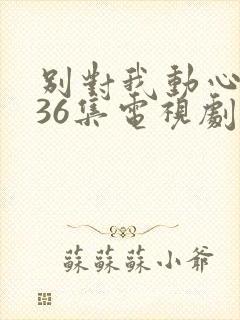 別對我動心
36集電視劇
蘇蘇蘇小爺